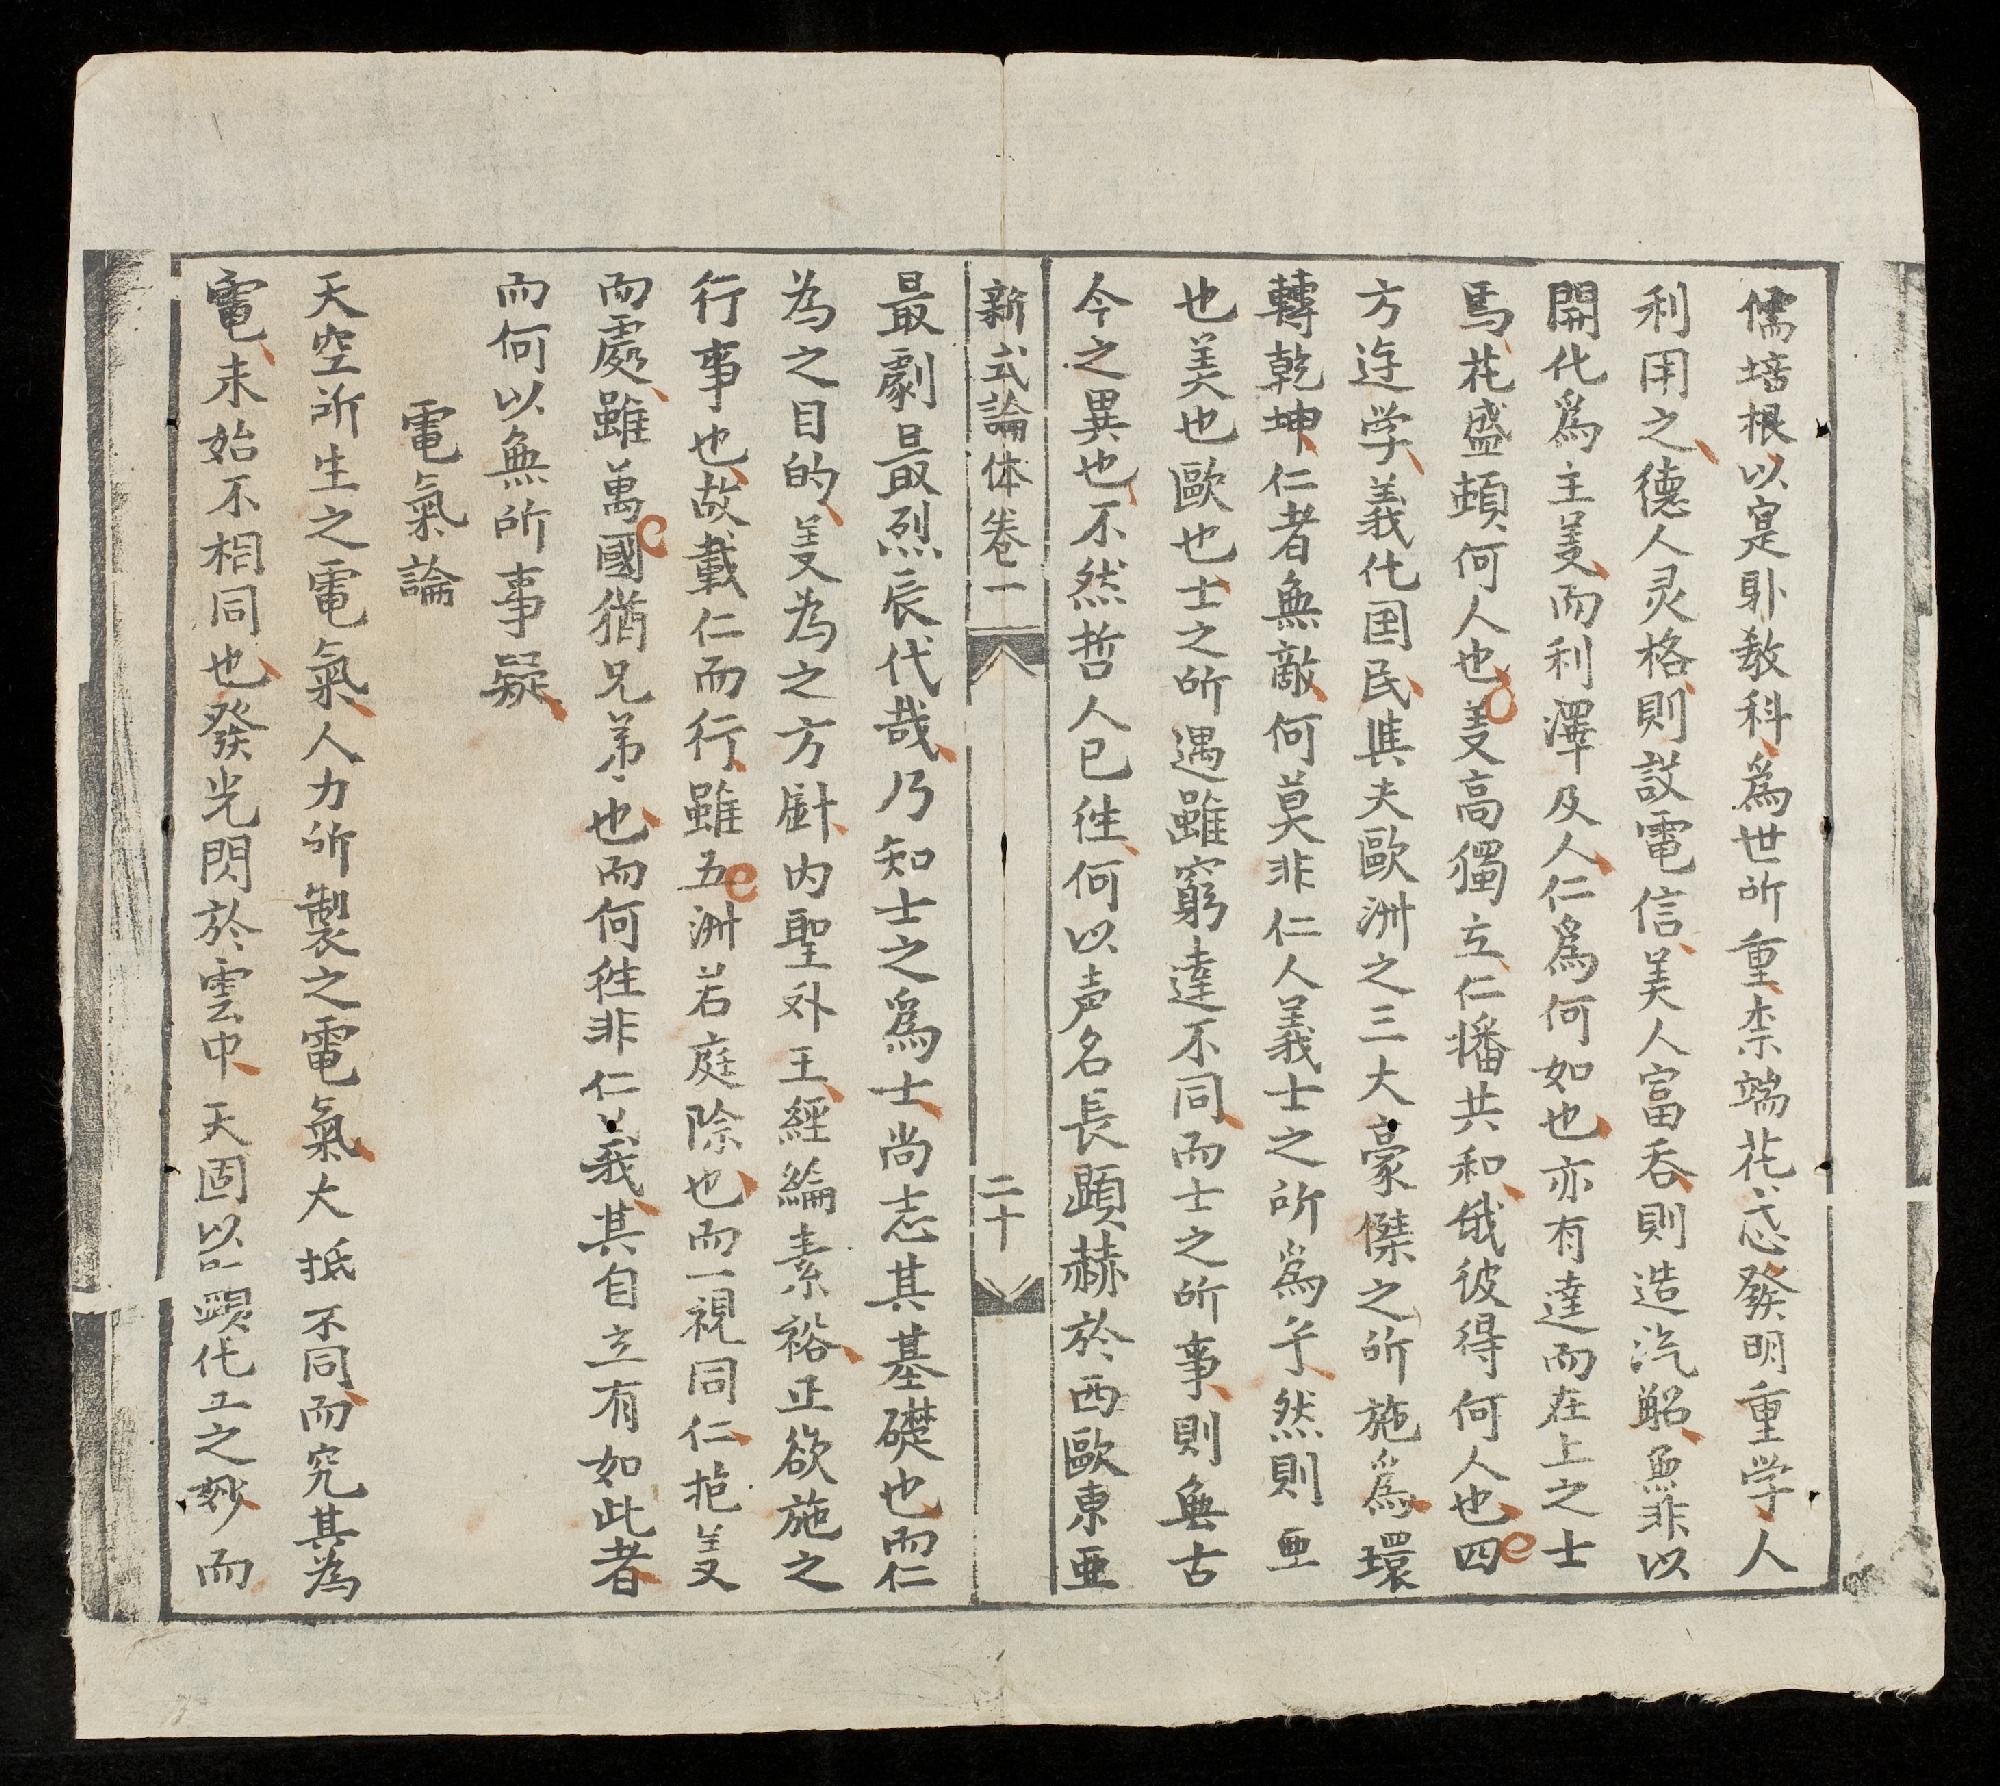 儒培根以寔卧教科爲世所重柰端花忒發明重学人
利用之德人灵格則設電信美人富呑則造汽船無非以
開化爲主義而利澤及人仁爲何如也亦有達而在上之士
馬花盛頓何人也義高獨立仁播共和俄彼得何人也四
方逰学義化囯民與夫歐洲之三大豪傑之所施爲環
轉乾坤仁者無敵何莫非仁人義士之所爲乎然則亜
也美也歐也士之所遇雖窮達不同而士之所事則無古
今之異也不然哲人已徃何以声名長顕赫於西歐東亜
新式論体卷一 二十
最劇最烈辰代哉乃知士之爲士尚志其基礎也而仁
為之目的義為之方針内聖外王經綸素裕正欲施之
行事也故載仁而行雖五洲若庭除也而一視同仁抱義
而處雖萬國猶兄弟也而何徃非仁義其自立有如此者
而何以無所事疑
電氣論
天空所生之電氣人力所製之電氣大抵不同而究其為
電未始不相同也發光閃於雲中天固以顕化工之妙而